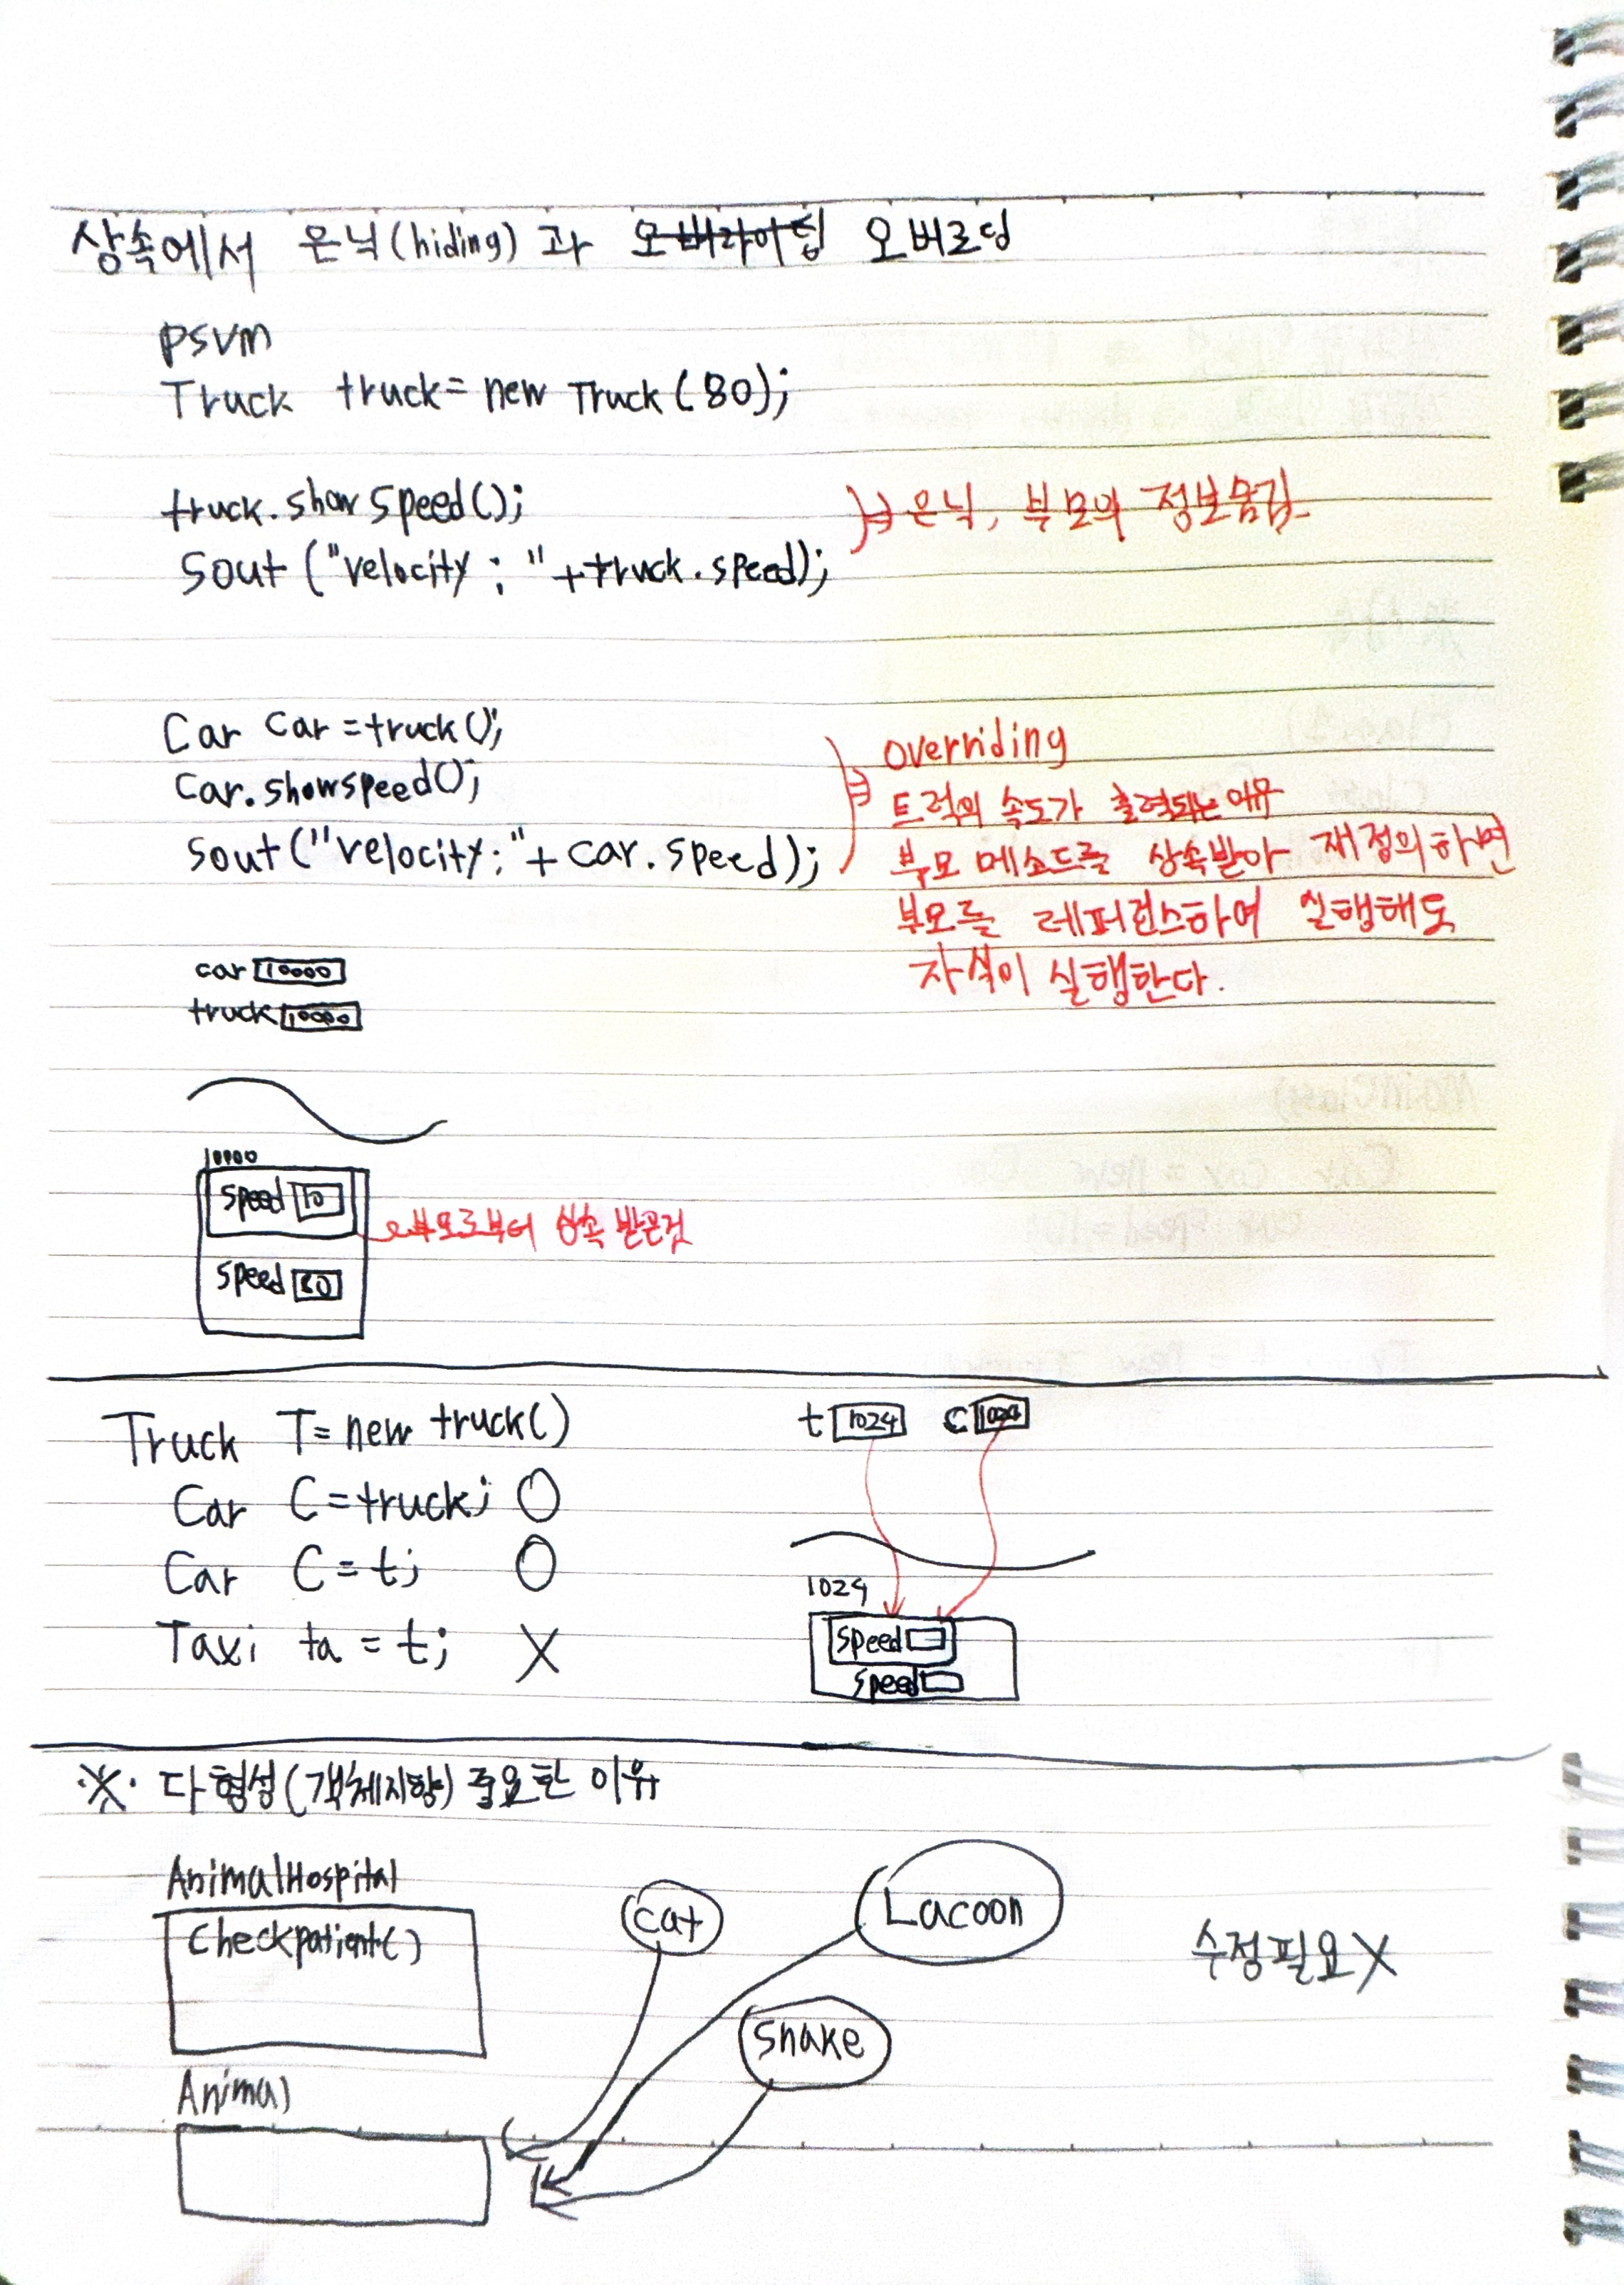 상속에서 은닉(hiding)과 오버라이딩 오버로딩
psvm
Truck truck = new Truck(80);
truck.showSpeed();
⇒ 은닉, 부모의 정보숨김
Sout("velocity : "+truck.speed);
Car car = truck();
Car.showspeed();
sout("velocity:"+ car.speed);
⇒ overriding
트럭의 속도가 출력되는 이유
부모 메소드를 상속받아 재정의하면
부모를 레퍼런스하여 실행해도
자식이 실행한다.
car 10000
truck 10000
10000
speed 10
부모로부터 상속 받은것
speed 80
Truck T= new truck()
Car C = truck; O
Car C = t; O
Taxi ta = t; X
t 1024 C 1024
1024
speed
speed
※. 다형성(객체지향) 중요한 이유
AnimalHospital
Checkpatient()
cat
Lacoon
snake
수정필요X
Animal